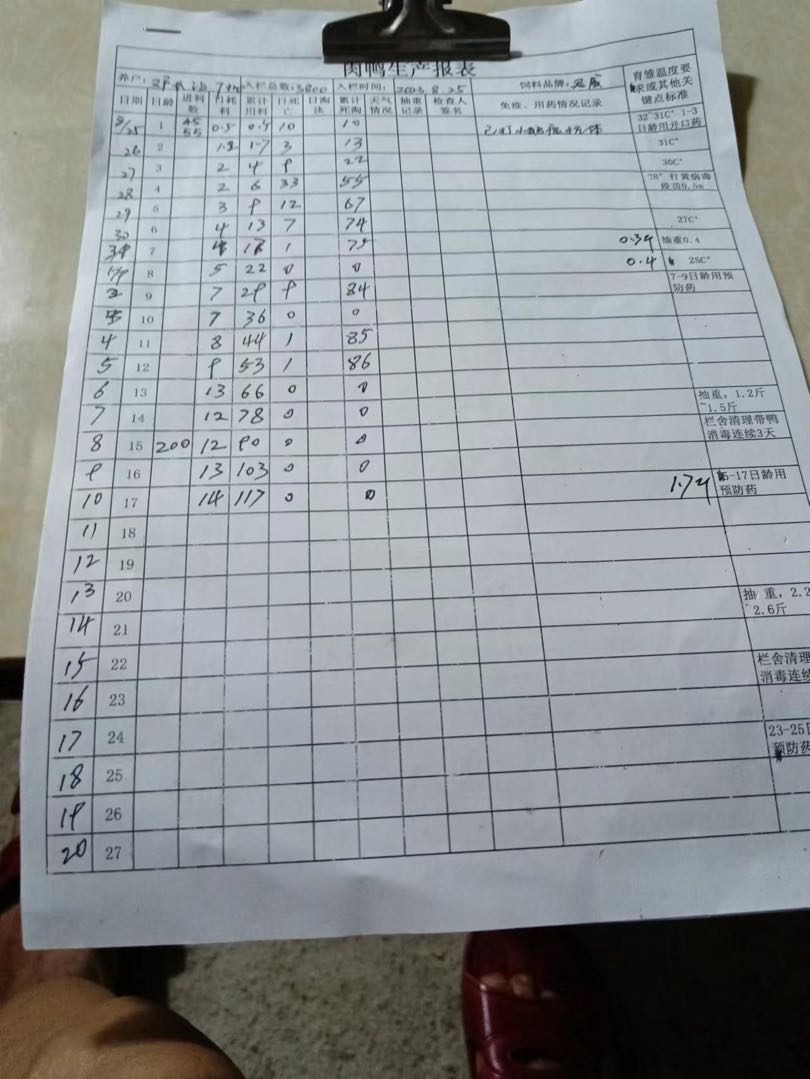 肉鸭生产报表
养户: 入栏总数:3800 入栏时间: 2003.8.25 饲料品牌: 育雏温度要求或其他关键点标准
日期 日龄 进料数 日耗料 累计用料 日死亡 日淘汰 累计死淘 天气情况 抽重记录 检查人签名 免疫、用药情况记录
8/25 1 45 55 0.5 0.5 10 10 32~31C° 1-3日龄用开口药
26 2 1.2 1.7 3 13 31C°
27 3 2 4 9 22 30C°
28 4 2 6 33 55 28° 打黄病毒疫苗0.5m
29 5 3 9 12 67
30 6 4 13 7 74 27C°
7 1 75 抽重0.4
8 5 22 0 0 0.4 25C°
2 9 7 29 9 84 7-9日龄用预防药
10 7 36 0 0
4 11 8 44 1 85
5 12 9 53 1 86
6 13 13 66 0 0 抽重,1.2斤~1.5斤
7 14 12 78 0 0 栏舍清理带鸭消毒连续3天
8 15 200 12 90 0 0
9 16 13 103 0 0
10 17 14 117 0 0 1.7斤 -17日龄用预防药
11 18
12 19
13 20 抽重,2.2~2.6斤
14 21
15 22 栏舍清理消毒连续
16 23
17 24 23-25日预防药
18 25
19 26
20 27